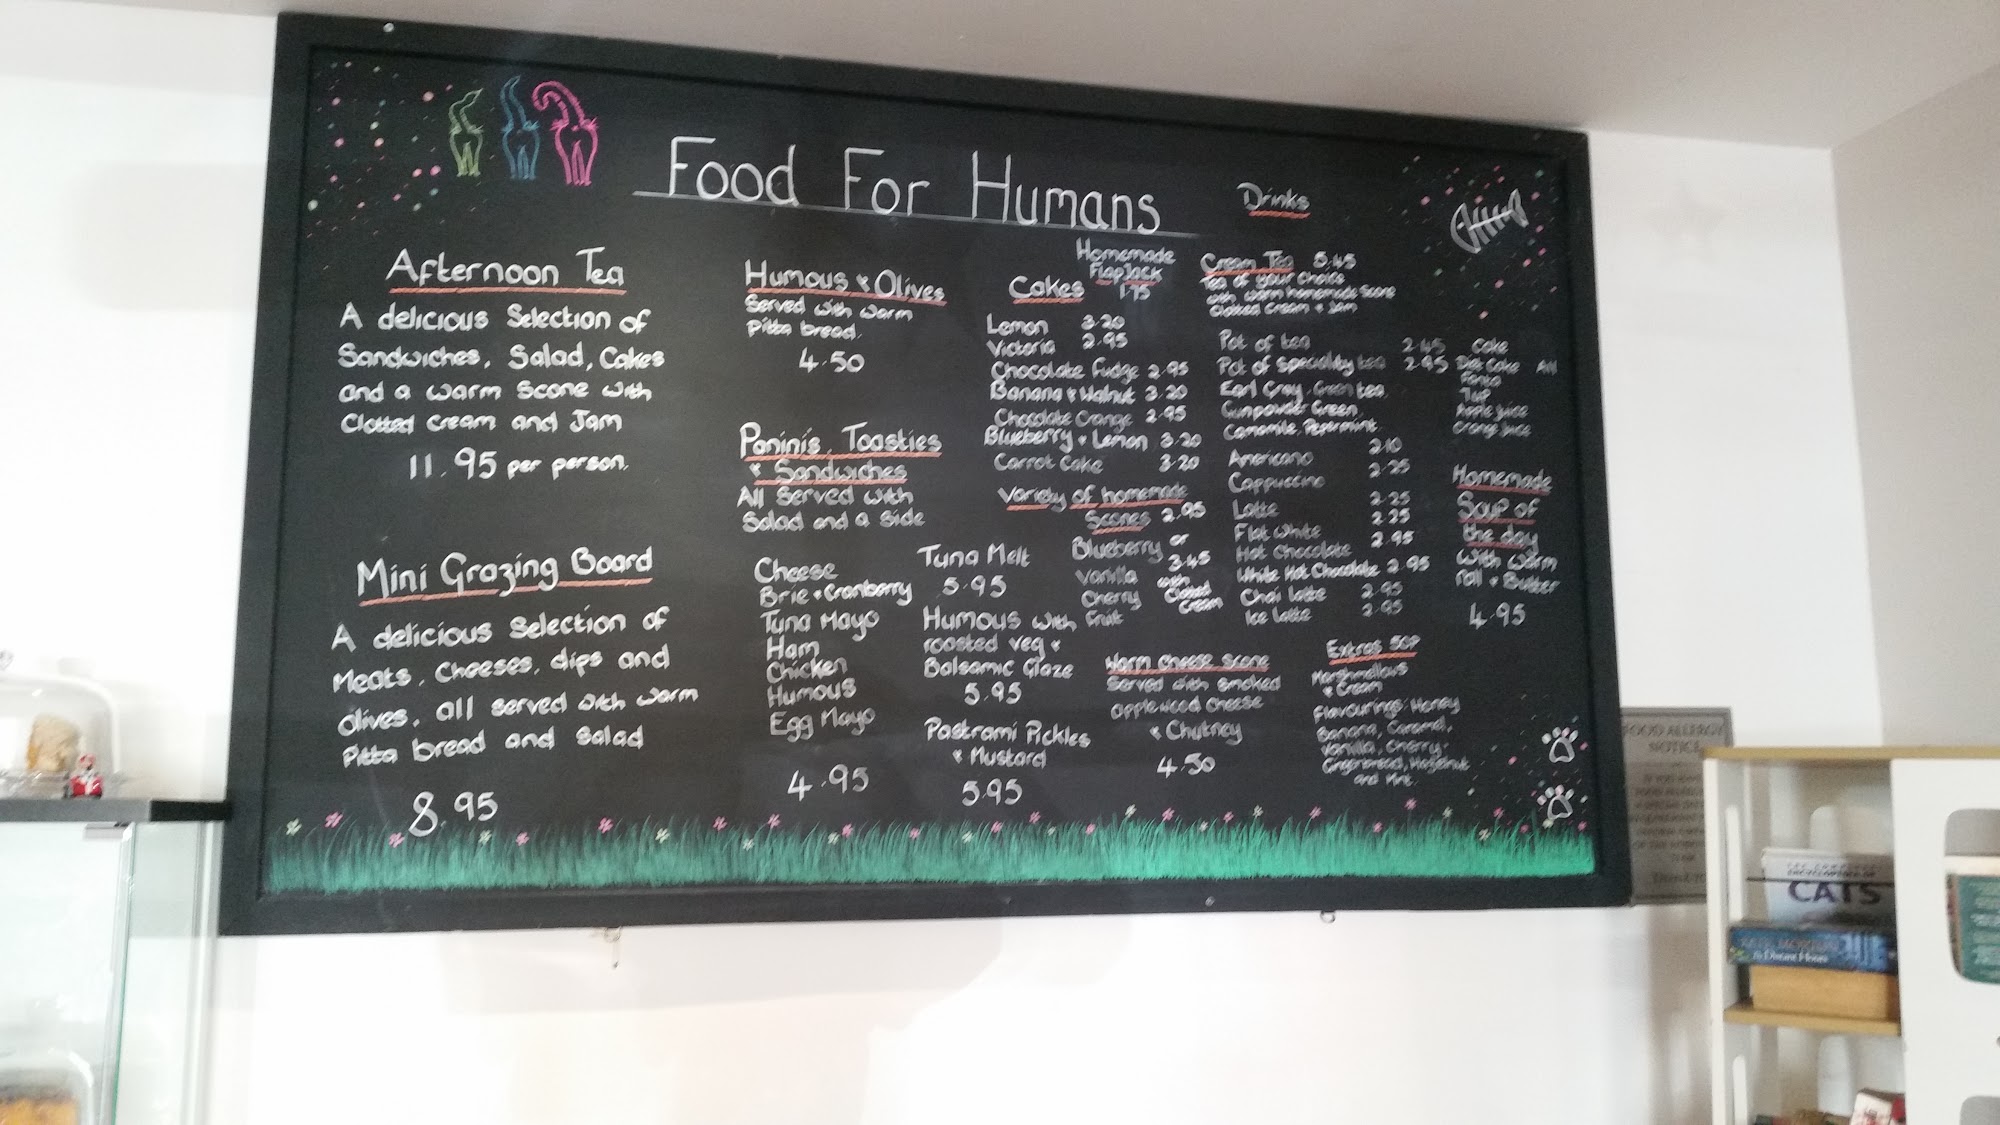 Food For Humans
Afternoon Tea
A delicious Selection of
Sandwiches, Salad, Cakes
and a warm Scone with
Clotted Cream and Jam
11.95 per person.
Mini Grazing Board
A delicious Selection of
Meats, Cheeses, dips and
olives, all served with warm
Pitta bread and salad
8.95
Humous & Olives
Served with warm
Pitta bread.
4.50
Paninis, Toasties
& Sandwiches
All Served with
Salad and a Side
Cheese
Brie & Cranberry
Tuna Mayo
Ham
Chicken
Humous
Egg Mayo
4.95
Tuna Melt
5.95
Humous with
roasted veg &
Balsamic Glaze
5.95
Pastrami Pickles
& Mustard
5.95
Homemade
FlapJack
1.75
Cakes
Lemon 3.20
Victoria 2.95
Chocolate Fudge 2.95
Banana & Walnut 3.20
Chocolate Orange 2.95
Blueberry & Lemon 3.20
Carrot Cake 3.20
Variety of homemade
Scones 2.95
Blueberry or
Vanilla 3.45
Cherry with
Fruit Clotted
Cream
Warm cheese scone
Served with smoked
applewood cheese
& Chutney
4.50
Drinks
Cream Tea 5.45
Tea of your choice
with warm homemade Scone
Clotted Cream & Jam
Pot of tea 2.45
Pot of speciality tea 2.95
Earl Gray, Green tea,
Gunpowder Green,
Camomile, Pepermint.
Americano 2.10
Cappuccino 2.25
Latte 2.25
Flat White 2.25
Hot Chocolate 2.95
White Hot Chocolate 2.95
Chai latte 2.95
Ice latte 2.95
Extras 50P
Marshmellows
& Cream
Flavourings: Honey
Banana, Caramel,
Vanilla, Cherry,
Gingerbread, Hazelnut
and Mint.
Coke
Diet Coke All
Fanta
7up
Apple juice
Orange juice
Homemade
Soup of
the day
with warm
roll & Butter
4.95
FOOD ALLERGY
NOTICE
ENCYCLOPEDIA OF
CATS